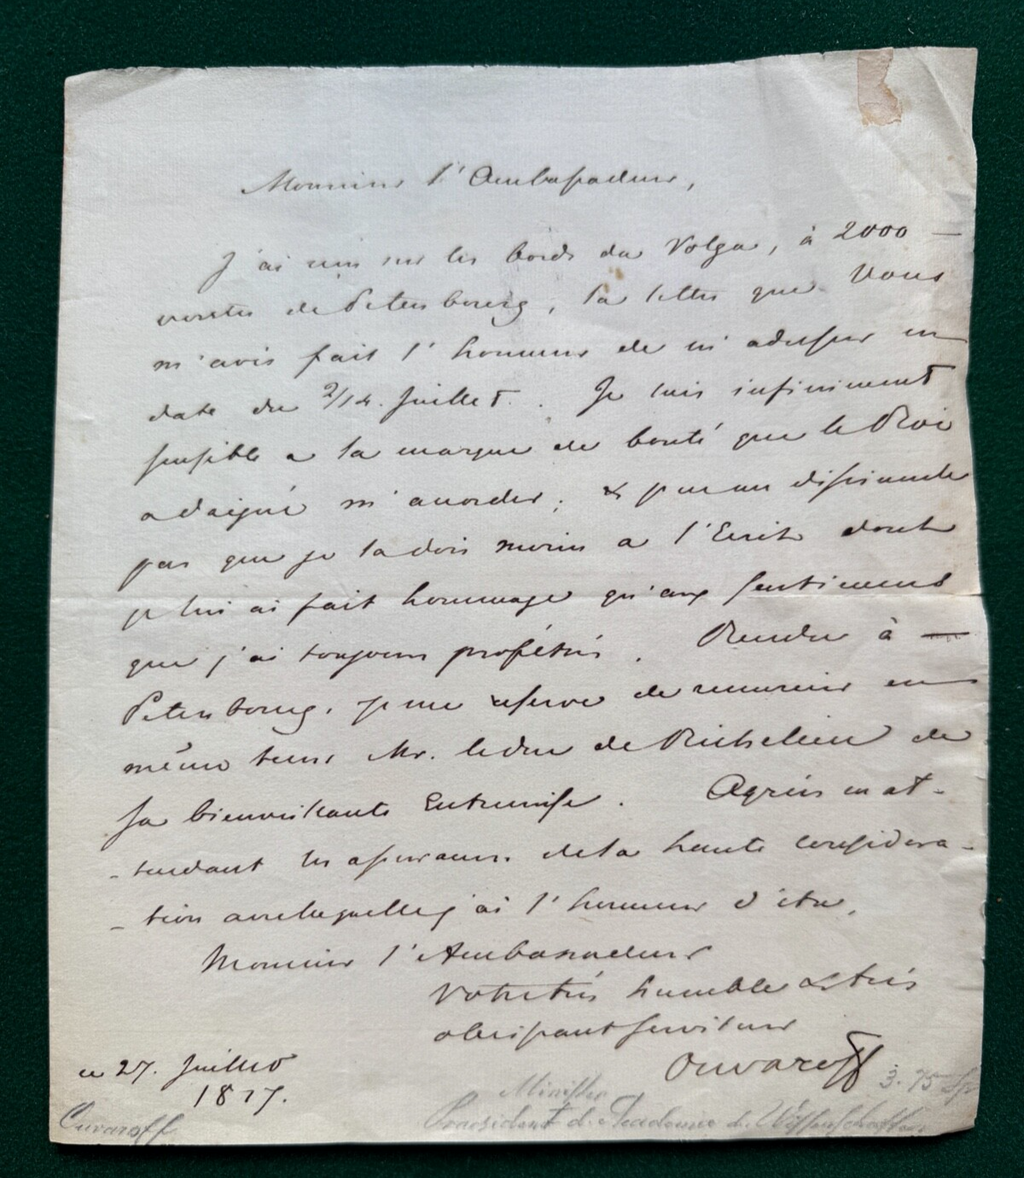 Monsieur l'Ambassadeur,
J'ai reçu sur les bords du Volga, à 2000 —
verstes de Petersbourg, la lettre que Vous
m'avés fait l'honneur de m'adresser en
date du 2/14. Juillet. Je suis infiniment
sensible a la marque de bonté que le Roi
a daigné m'accorder; & je ne me dissimule
pas que je la dois moins a l'Ecrit dont
je lui ai fait hommage qu'aux sentimens
que j'ai toujours professés. Rendu à —
Petersbourg, je me reserve de remercier en
même tems Mr. le duc de Richelieu de
sa bienveillante Entremise. Agréés en at-
-tendant les assurances de la haute considera-
-tion avec laquelle j'ai l'honneur d'etre,
Monsieur l'Ambassadeur
Votre très humble & très
obeissant serviteur
Ouvaroff
ce 27. Juillet
1817.
Ouvaroff
Minister
Praesident d. Academie d. Wissenschaften
3.75